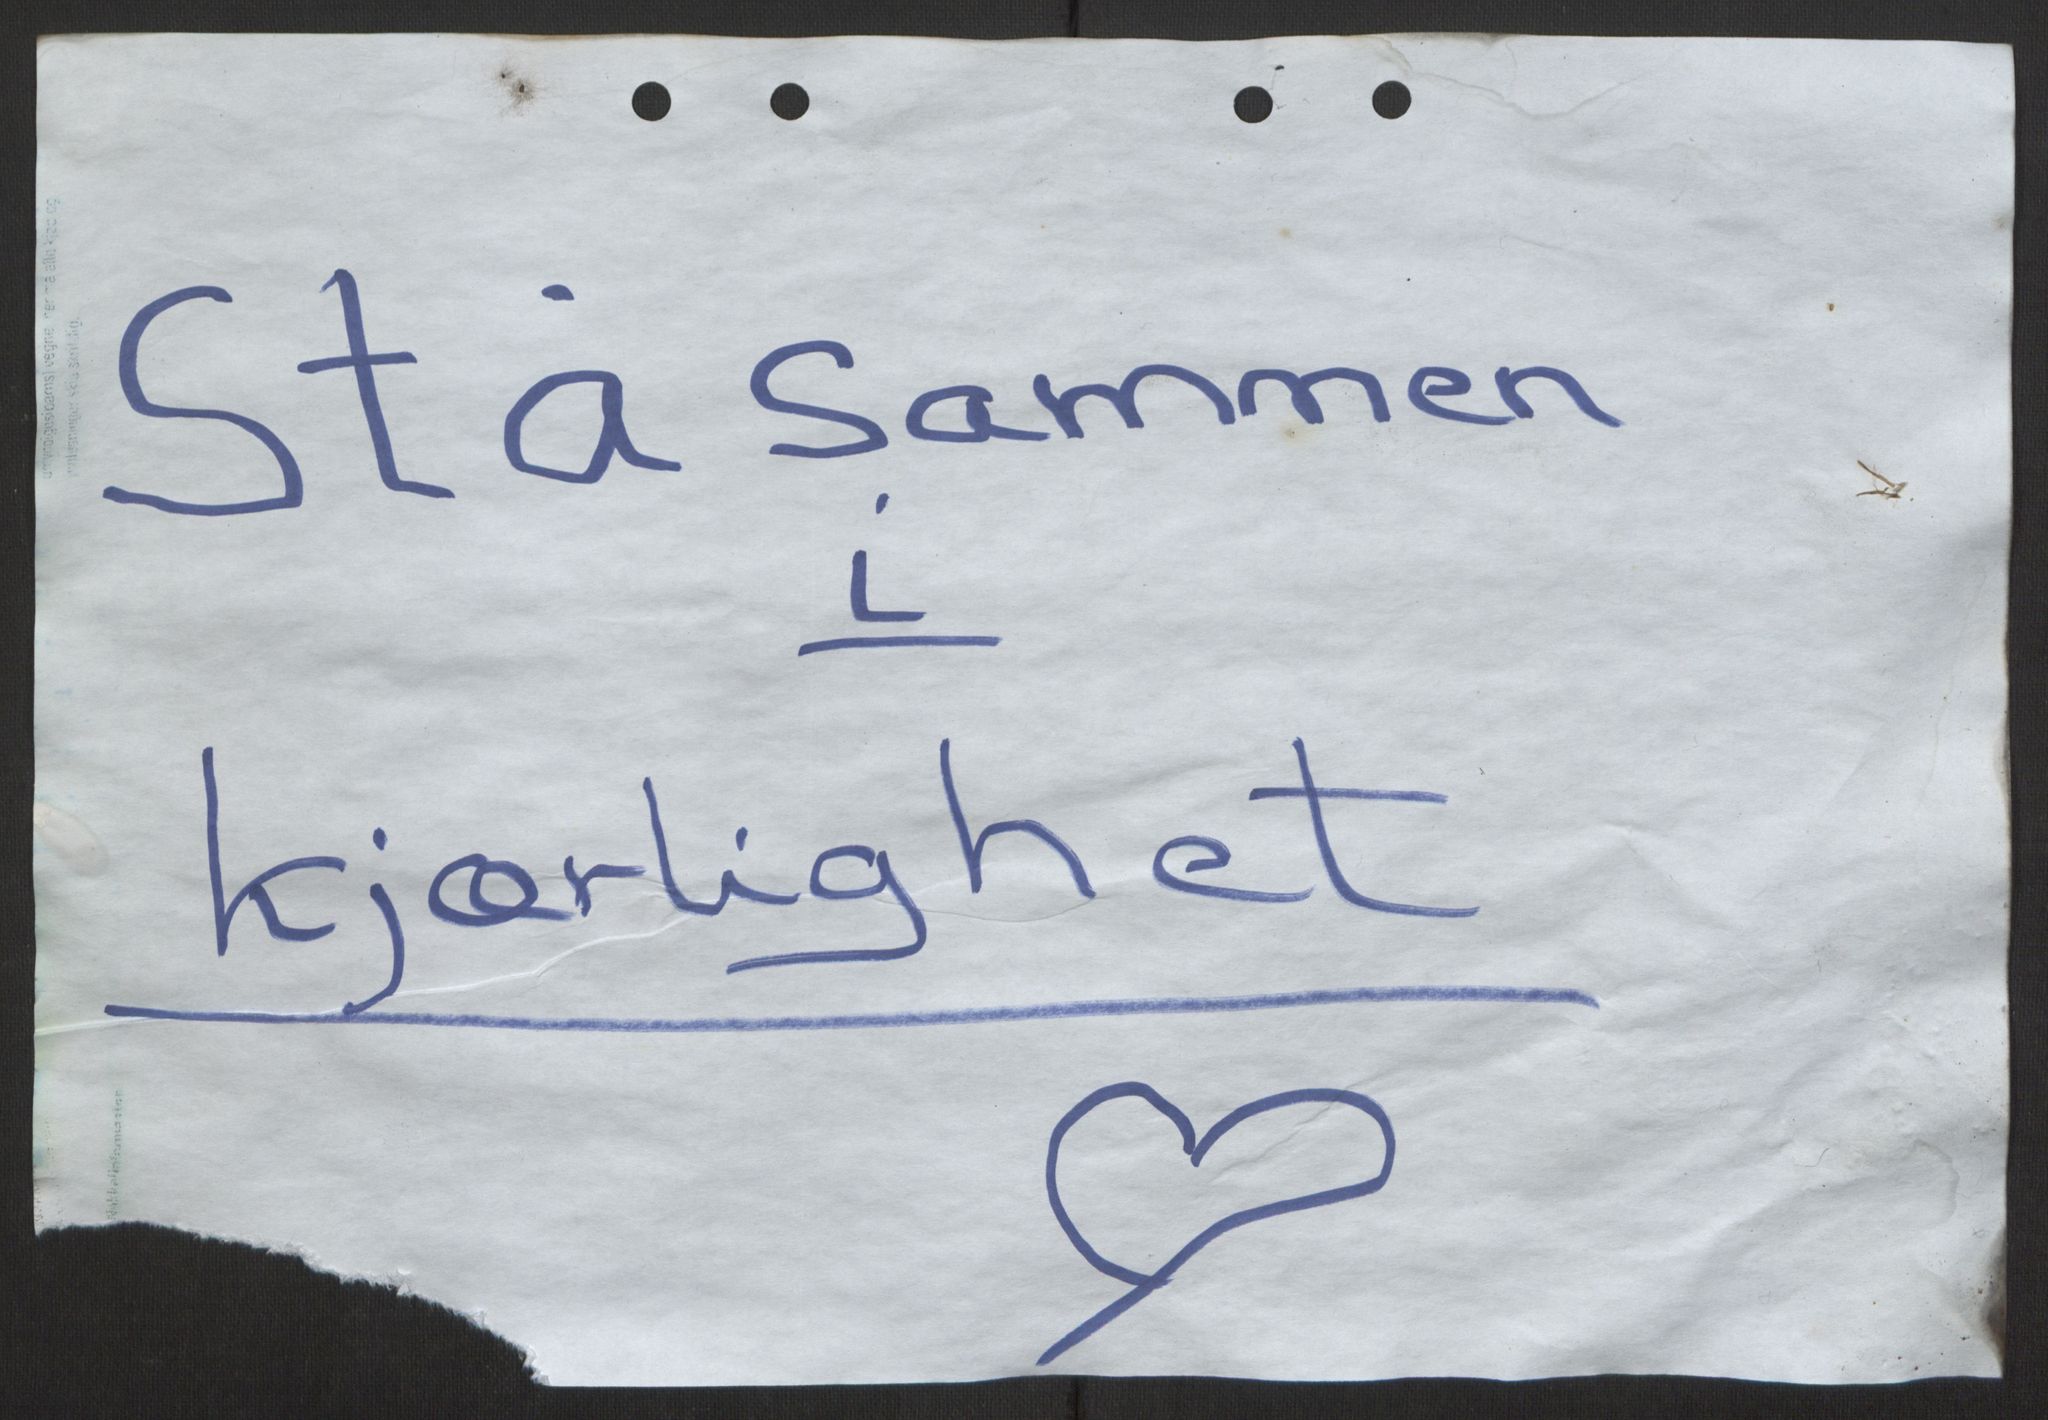 Stå sammen
i
kjærlighet